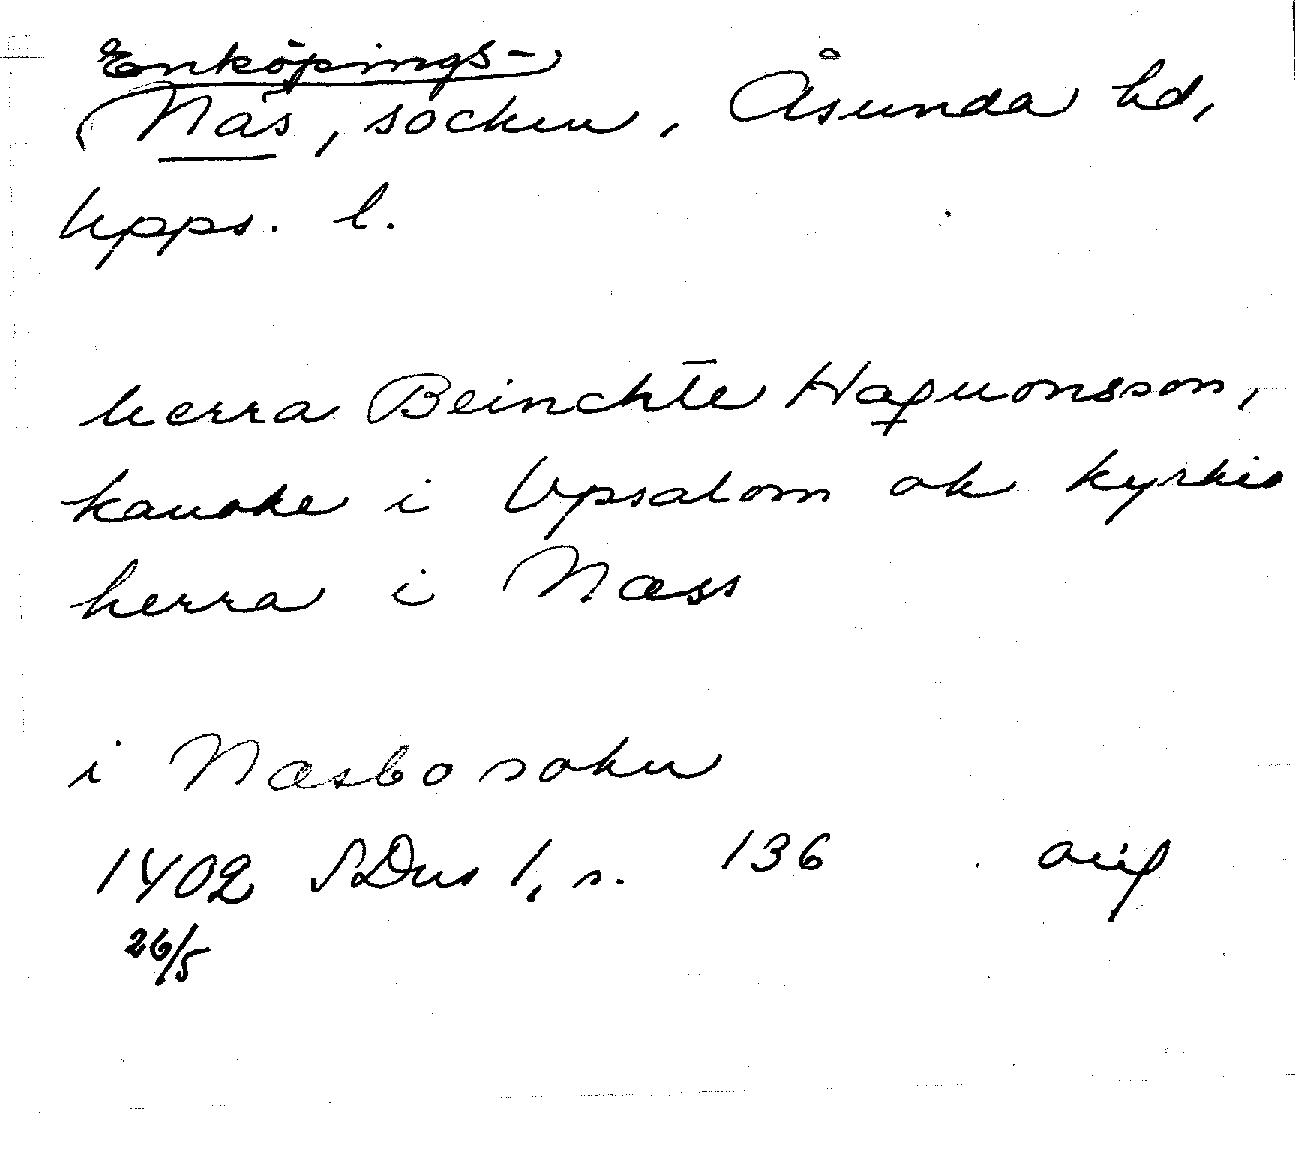 Enköpings-
Näs, socken, Åsunda hd,
Upps. l.
herra Beinchte Haquonsson,
kanoke i Vpsalom ok kyrkio
herra i Næss
i Næsbo sokn
1402 SDns 1, s. 136 orig
26/5